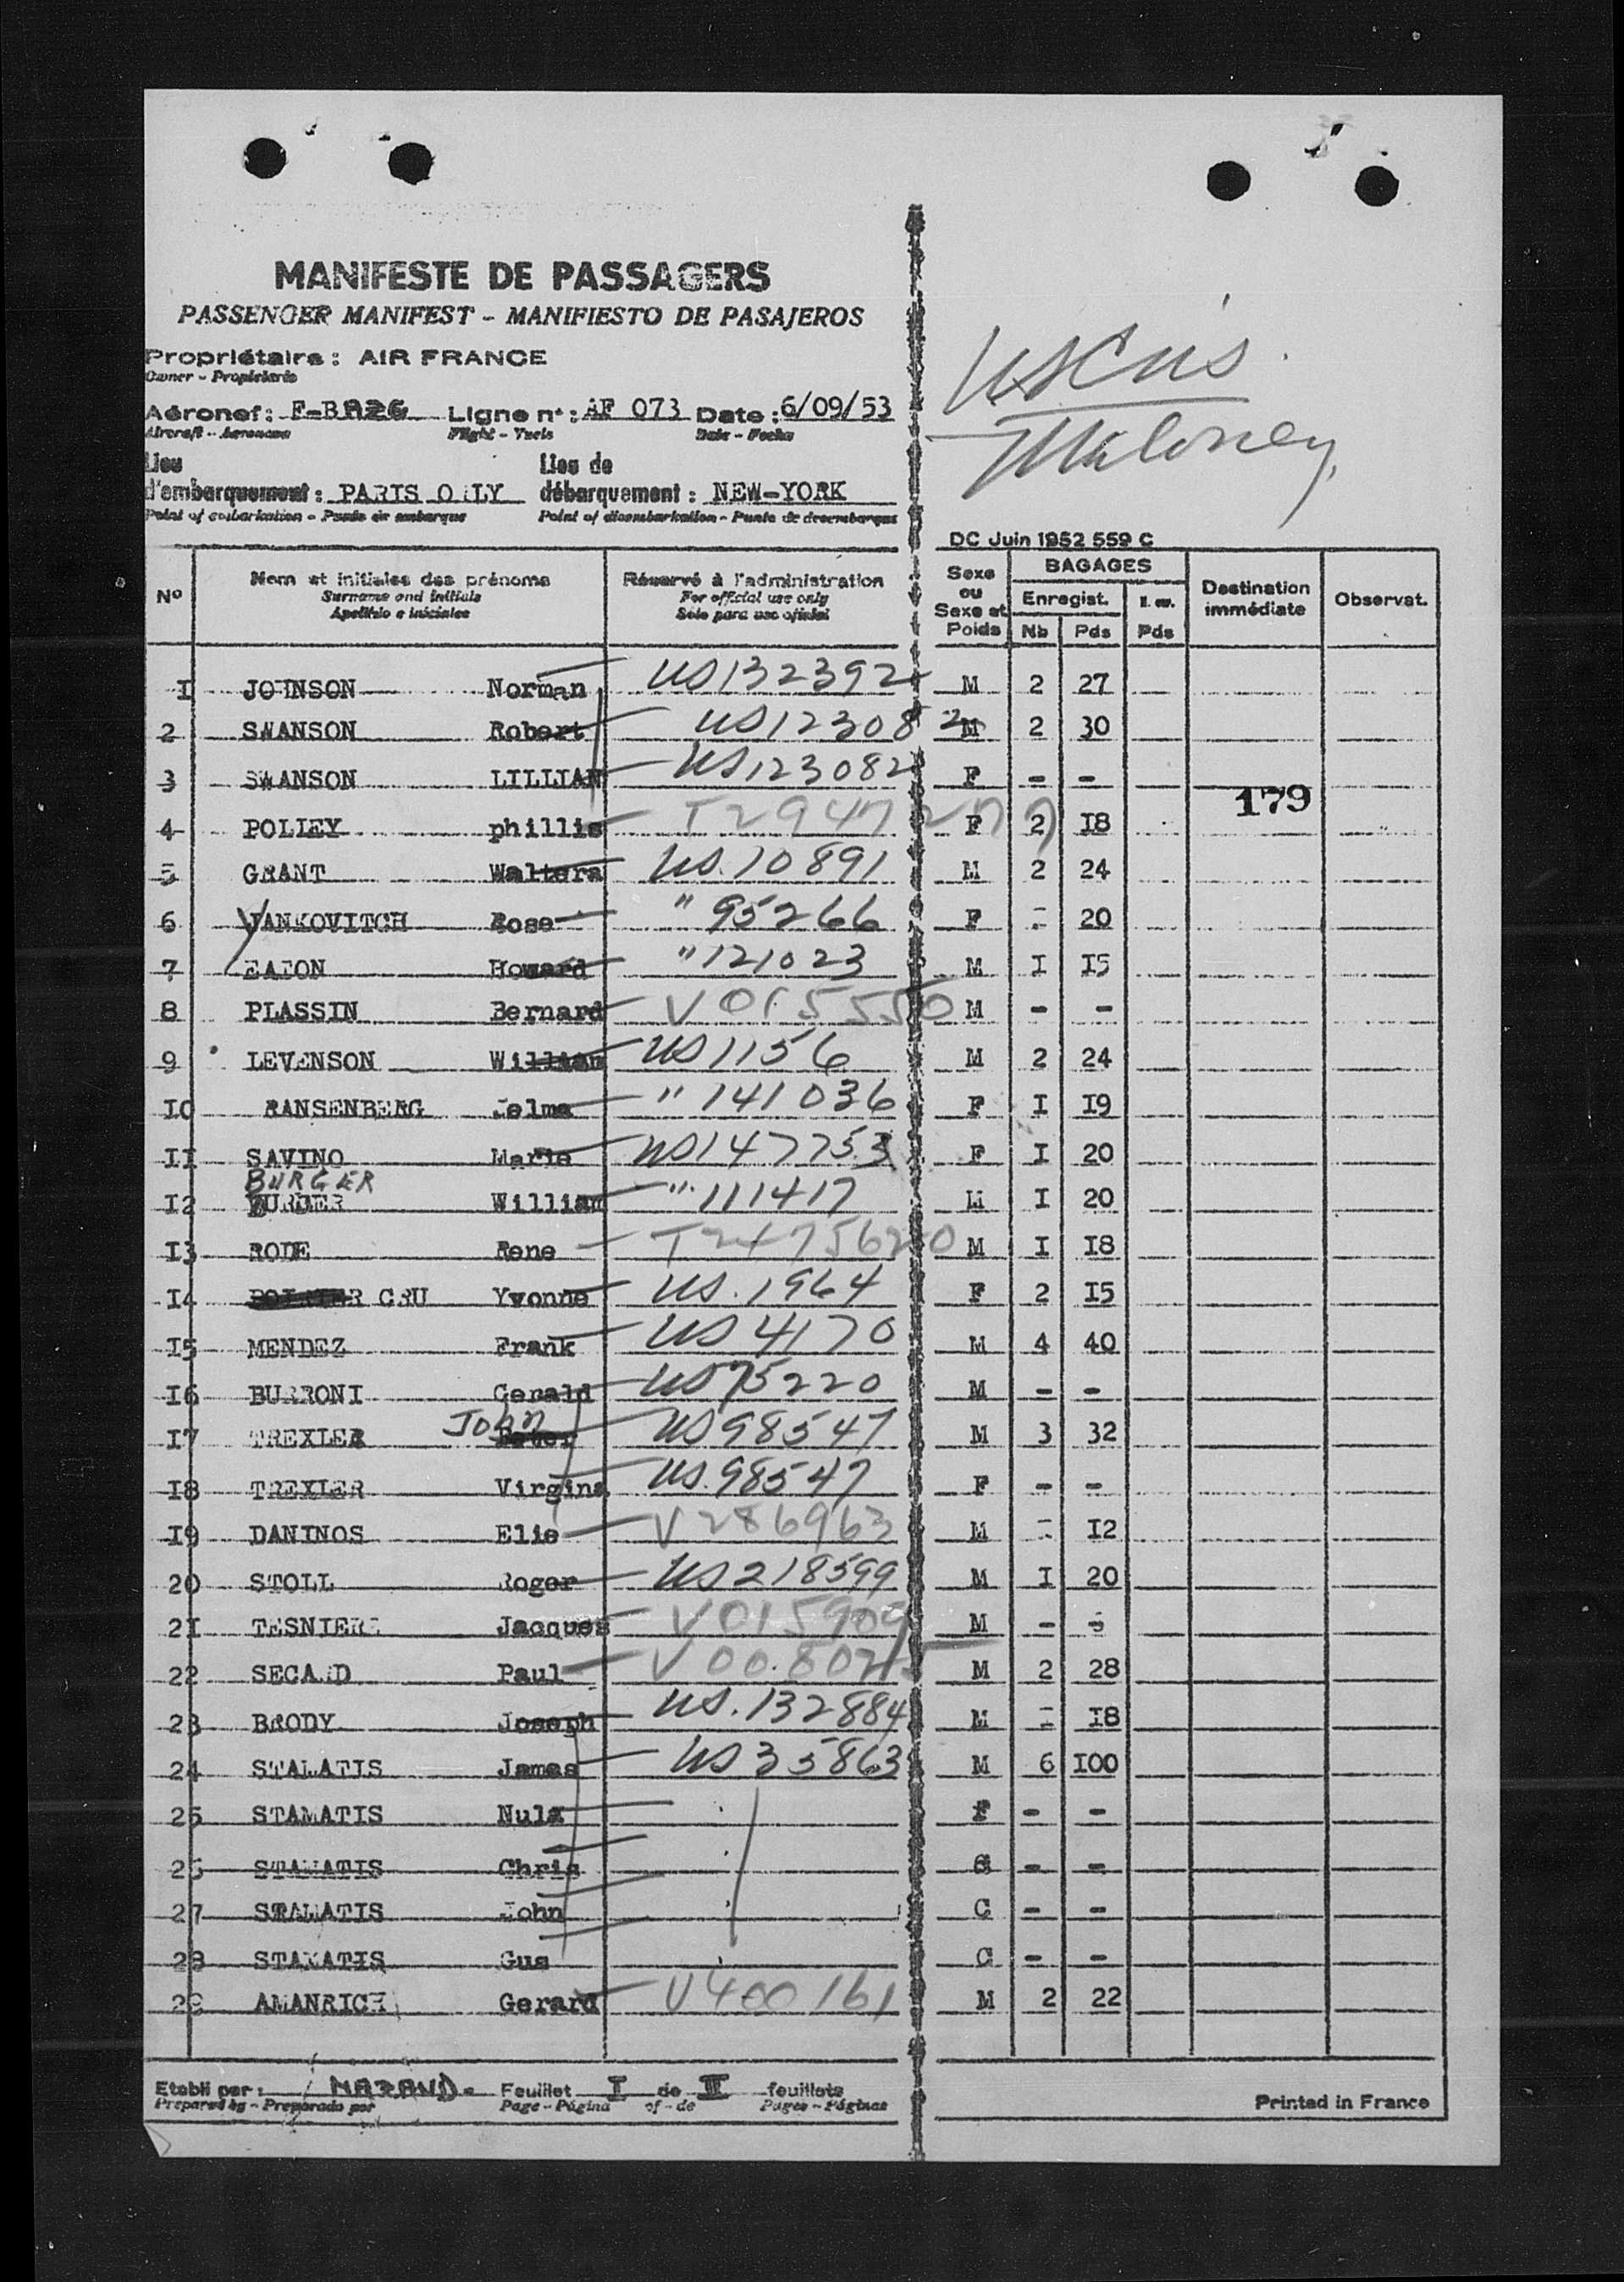 MANIFESTE DE PASSAGERS
PASSENGER MANIFEST - MANIFIESTO DE PASAJEROS
Propriétaire : AIR FRANCE
Owner - Propietario
Aéronef : Ligne n° : AF 073 Date : 6/09/53
Aircraft - Aeronave Flight - Vuelo Date - Fecha
Lieu d'embarquement : PARIS O LY Lieu de débarquement : NEW-YORK
Point of embarkation - Punto de embarque Point of disembarkation - Punto de desembarque
USCis
Maloney
DC Juin 1952 559 C
N° Nom et initiales des prénoms Réservé à l'administration Sexe ou Sexe et Poids BAGAGES Destination immédiate Observat.
Surname and initials For official use only Enregist.
Apellido e iniciales Solo para uso oficial Nb Pds Pds
I JOHNSON Norman US132392 M 2 27
2 SWANSON Robert US123082 M 2 30
3 SWANSON LILLIAN US123082 F - -
179
4 POLLEY phillis T2947277 F 2 I8
5 GRANT Waltera US.10891 M 2 24
6 YANKOVITCH Rose " 95266 F - 20
7 EATON Howard " 121023 M I I5
8 PLASSIN Bernard V015550 M - -
9 LEVENSON William US1156 M 2 24
I0 RANSENBERG elma " 141036 F I I9
II SAVINO Marie US147753 F I 20
BURGER
I2 William " 111417 M I 20
I3 RODE Rene T2475620 M I I8
I4 CRU Yvonne US.1964 F 2 I5
I5 MENDEZ Frank US4170 M 4 40
I6 BURRONI Gerald US75220 M - -
John
I7 TREXLER US98547 M 3 32
I8 TREXLER Virgina US.98547 F - -
I9 DANINOS Elie V286963 M - I2
20 STOLL Roger US218599 M I 20
2I TESNIERE Jacques V015909 M - -
22 SECARD Paul V00.80215 M 2 28
23 BRODY Joseph US.132884 M - I8
24 STALATIS James US35863 M 6 I00
25 STAMATIS Nula F - -
26 STAMATIS Chris C - -
27 STAMATIS John C - -
28 STAMATIS Gus C - -
29 AMANRICH Gerard V400161 M 2 22
Etabli par : MARAND Feuillet I de III feuillets
Prepared by - Preparado por Page - Página of - de Pages - Páginas
Printed in France